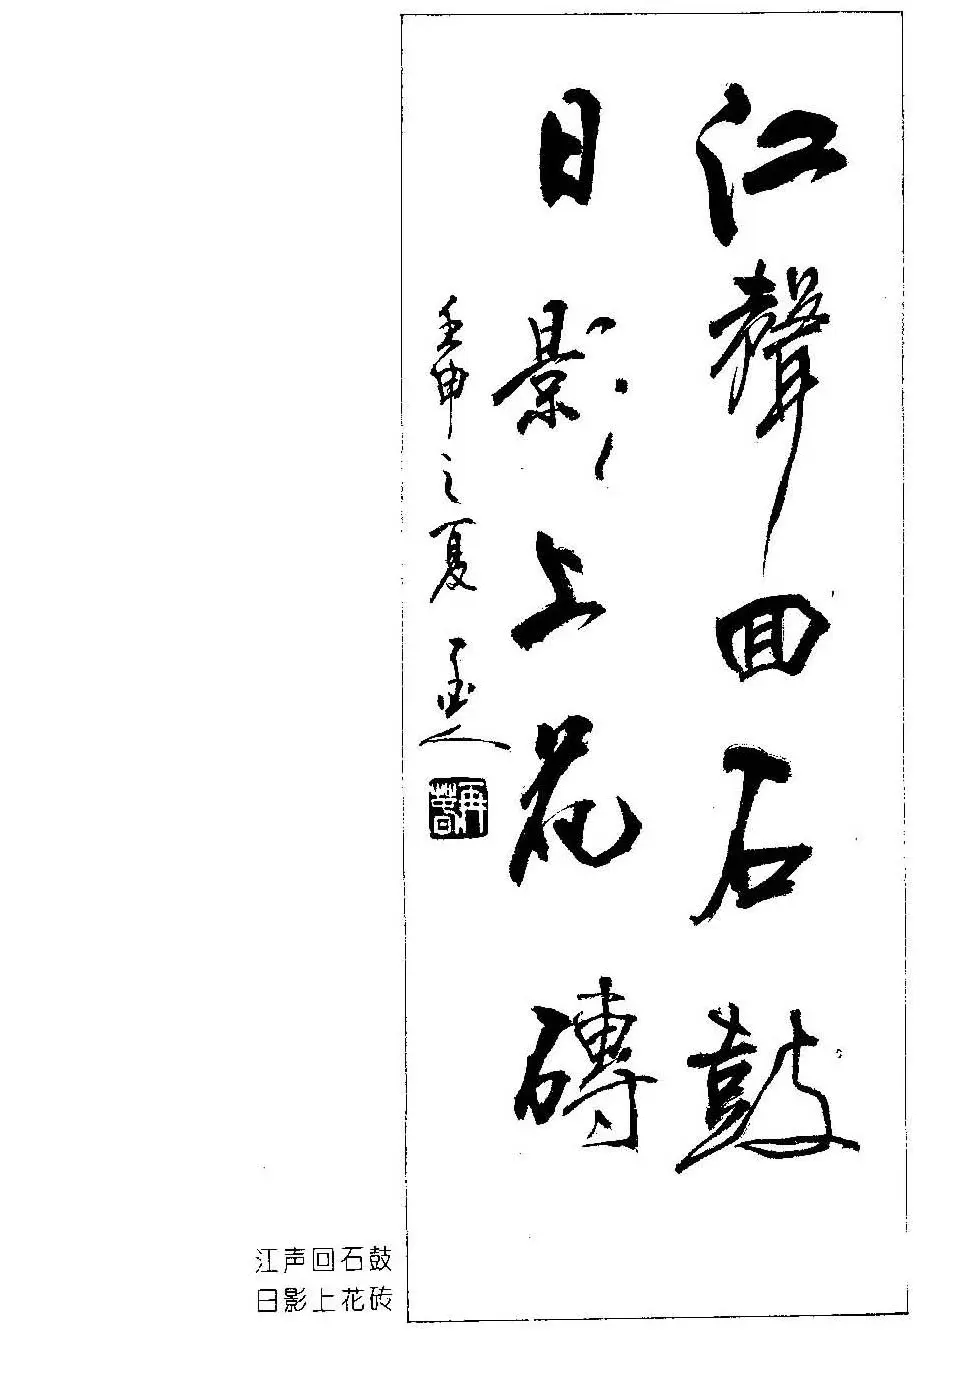 江聲回石鼓
日影上花磚
壬申之夏
江声回石鼓
日影上花砖